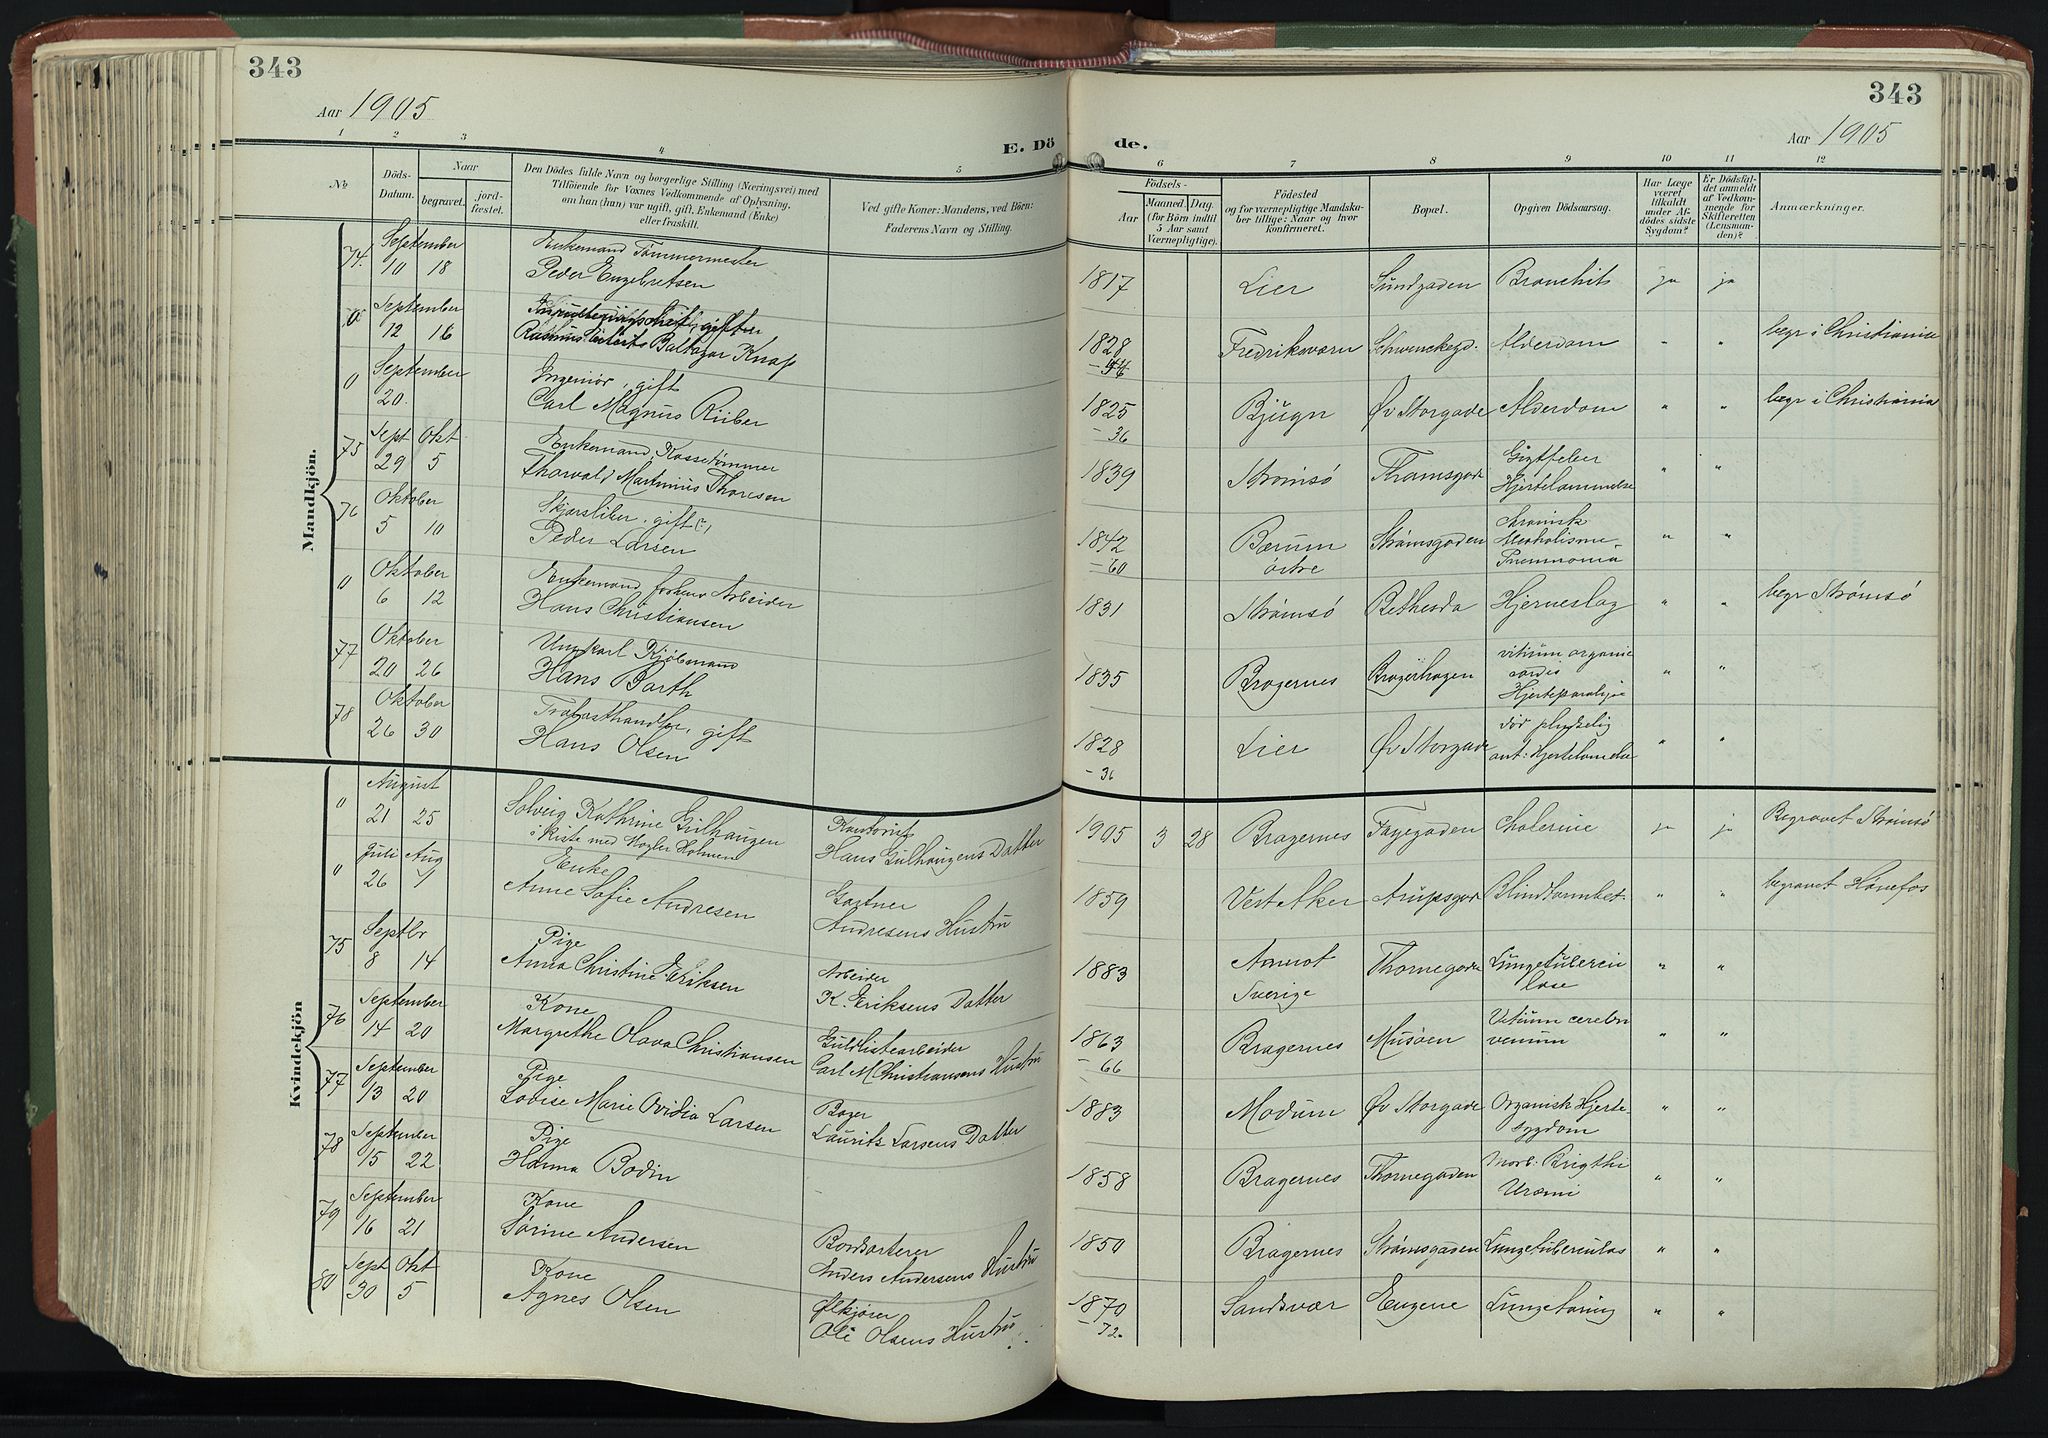 343
Aar 1905
1
2
3
4
5
E. Dö
No
Döds-
Datum.
Naar
begravet.
jord-
fæstet.
Den Dödes fulde Navn og borgerlige Stilling (Næringsvei) med
Tilföiende for Voxnes Vedkommende af Oplysning,
om han (hun) var ugift, gift, Enkemand (Enke)
eller fraskilt.
Ved gifte Koner: Mandens, ved Börn:
Faderens Navn og Stilling.
Mandkjön.
74. September Enkemand Tømmermester
10 18 Peder Engebretsen
0 September gift
12 16 Rasmus Baltazar Knap
0 September Ingeniør, gift
20. Carl Magnus Riiber
75 Sept Okt Enkemand,
29 5 Thorvald Martinius Thoresen
76 Oktober Skjærsliber, gift
5 10 Peder Larsen
0 Oktober Enkemand, Arbeider
6 12 Hans Christiansen
77 Oktober Ungkarl Kjøbmand
20 26 Hans Barth
78 Oktober Trælasthandler, gift
26 30 Hans Olsen
Kvindekjön
0 August
21 25 Solveig Kathrine Gulhaugen
i Kiste med
Hans Gulhaugens Datter
0 Juli Aug Enke
26 1 Anne Sofie Andresen
Gartner
Andresens Hustru
75 Septbr Pige
8 14 Anna Christine Eriksen
Arbeider
K. Eriksens Datter
76 September Kone
14 20 Margrethe Olava Christiansen
Guldlistearbeider
Carl M Christiansens Hustru
77 September Pige
13 20 Lovise Marie Ovidia Larsen
Bager
Laurits Larsens Datter
78 September Pige
15 22 Hanna Bodin
79 September Kone
16 21 Sørine Andersen
Bordsorterer
Anders Andersens Hustru
80 Sept Okt Kone
30 5 Agnes Olsen
Ølkjører
Ole Olsens Hustru
343
Aar 1905
de.
6
7
8
9
10
11
12
Födsels-
Aar
Maaned.
Dag.
(for Börn indtil
5 Aar samt
Værnepligtige).
Födested
og for værnepligtige Mandska-
ber tillige: Naar og hvor
Konfirmeret.
Bopæl.
Opgiven Dödsaarsag.
Har Læge
været
tilkaldt
under Af-
dödes sidste
Sygdom?
Er Dödsfal-
det anmeldt
af Vedkom-
mende for
Skifteretten
(Lensman-
den)?
Anmærkninger.
1817 Lier Sundgaden Bronchit ja ja
1828 Fredriksværn Schwenckegd. Alderdom - " begr i Christiania
1825 Bjugn Øv Storgade Alderdom " " begr i Christiania
-36
1839 Strømsø Thamsgade Gigtfeber
Hjertelammelse " "
1842 Bærum Strømsgaden Kronisk
Alcoholisme
-60 østre Pneumonia " "
1831 Strømsø Bethesda Hjerneslag " " begr Strømsø
1835 Bragernes Bragerhagen vitium organic
cordis
Hjerteparalyse " "
1828 Lier Øv Storgade Død pludselig
-36 ant: Hjertelamelse " "
1905 3 28 Bragernes Fayegaden Cholerine ja ja Begravet Strømsø
1859 Vest Aker Arupsgade Blindtarmbet. " " begravet Hønefos
1883 Thornegade " "
Sverige
1863 Bragernes Musøen Vitium cerebri " "
-66
1883 Modum Øv Storgade Organisk Hjerte-
sygdom " "
1858 Bragernes Thornegaden Morb: Brigthi
Uræmi " "
1850 Bragernes Strømsgaden Lungetuberculos " "
1870 Sandsvær Eugene Lungetæring " "
-72